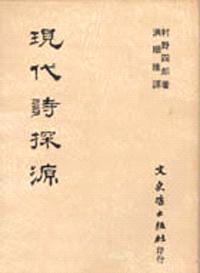 現代詩探源
村野四郎著
洪順隆譯
文史哲出版社印行